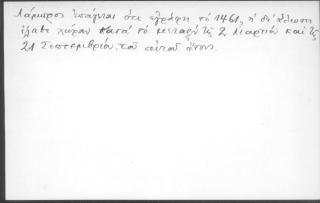 Λάμπρος ὑπάγεται ὅτι ἐγράφη τό 1461, ἡ δέ ἅλωσις
ἔλαβε χώραν κατά τό μεταξύ τῆς 2 Μαρτίου καί τῆς
21 Σεπτεμβρίου τοῦ αὐτοῦ ἔτους.